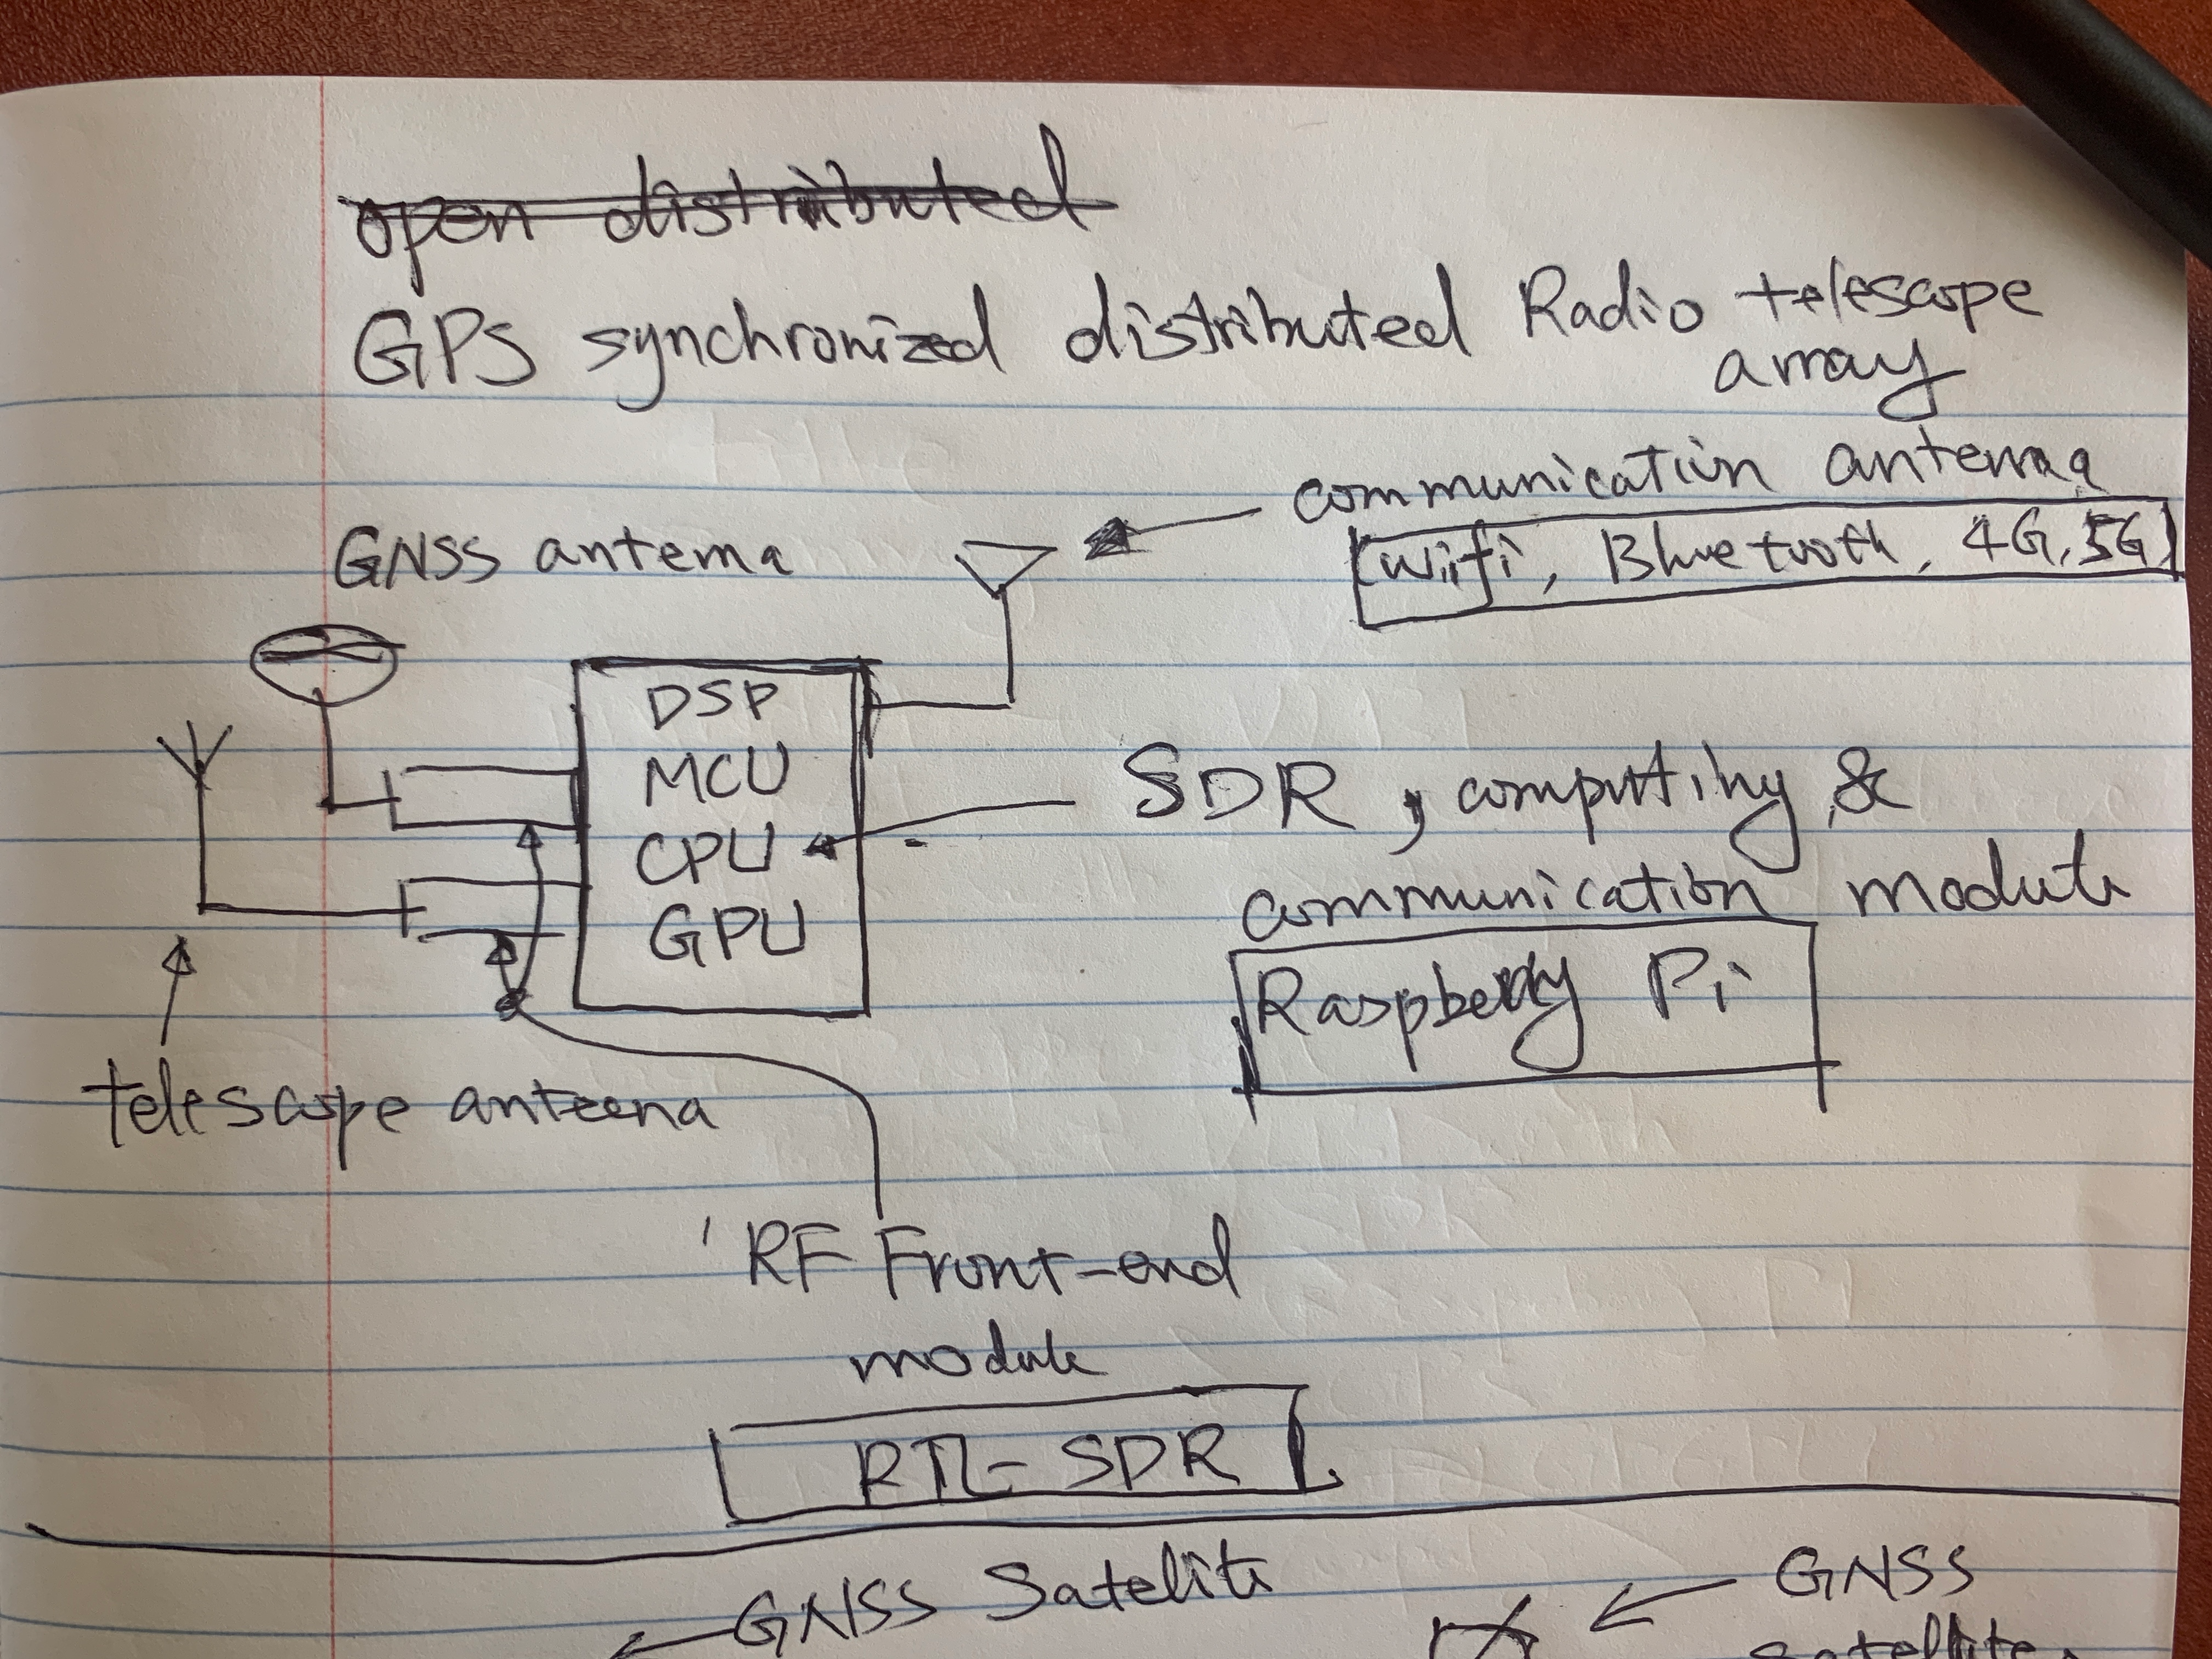 open distributed
GPS synchronized distributed Radio telescope
array
communication antenna
(Wifi, Bluetooth, 4G, 5G)
GNSS antenna
DSP
MCU
CPU
GPU
SDR, computing &
communication module
Raspberry Pi
telescope anteena
RF Front-end
module
RTL-SDR
GNSS Satelite
GNSS
satellite